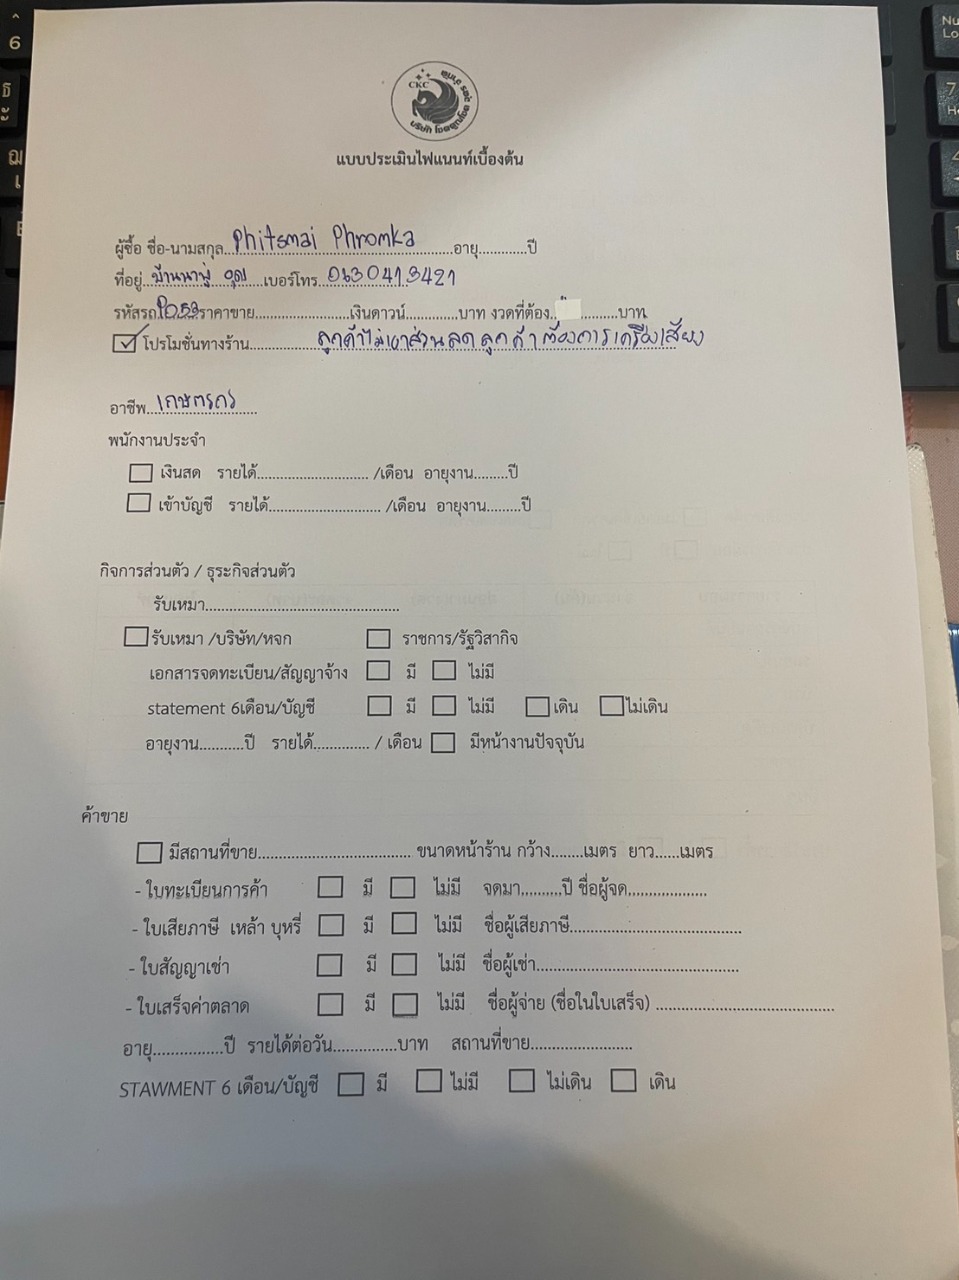 CKC
บริษัท โชคคูณโชค
แบบประเมินไฟแนนท์เบื้องต้น
ผู้ซื้อ ชื่อ-นามสกุล Phitsmai Phromka อายุ...........ปี
ที่อยู่ บ้านนาพู่ อุดร เบอร์โทร 0630413421
รหัสรถ P053 ราคาขาย.....................เงินดาวน์............บาท งวดที่ต้อง............บาท
☑ โปรโมชั่นทางร้าน ลูกค้าไม่เอาส่วนลด ลูกค้าต้องการเครื่องเสียง
อาชีพ เกษตรกร
พนักงานประจำ
☐ เงินสด รายได้.......................... /เดือน อายุงาน........ปี
☐ เข้าบัญชี รายได้.......................... /เดือน อายุงาน........ปี
กิจการส่วนตัว / ธุระกิจส่วนตัว
รับเหมา.............................................
☐ รับเหมา /บริษัท/หจก ☐ ราชการ/รัฐวิสากิจ
เอกสารจดทะเบียน/สัญญาจ้าง ☐ มี ☐ ไม่มี
statement 6เดือน/บัญชี ☐ มี ☐ ไม่มี ☐ เดิน ☐ ไม่เดิน
อายุงาน..........ปี รายได้............. / เดือน ☐ มีหน้างานปัจจุบัน
ค้าขาย
☐ มีสถานที่ขาย.................................... ขนาดหน้าร้าน กว้าง........เมตร ยาว......เมตร
- ใบทะเบียนการค้า ☐ มี ☐ ไม่มี จดมา.........ปี ชื่อผู้จด..................
- ใบเสียภาษี เหล้า บุหรี่ ☐ มี ☐ ไม่มี ชื่อผู้เสียภาษี.......................................
- ใบสัญญาเช่า ☐ มี ☐ ไม่มี ชื่อผู้เช่า.............................................
- ใบเสร็จค่าตลาด ☐ มี ☐ ไม่มี ชื่อผู้จ่าย (ชื่อในใบเสร็จ) ........................................
อายุ................ปี รายได้ต่อวัน...............บาท สถานที่ขาย.......................
STAWMENT 6 เดือน/บัญชี ☐ มี ☐ ไม่มี ☐ ไม่เดิน ☐ เดิน